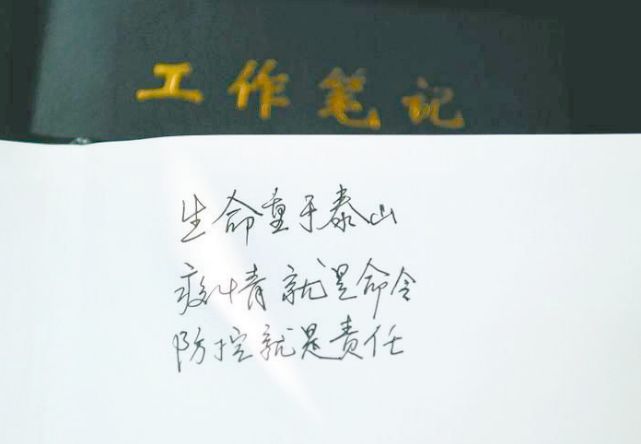 工作笔记
生命重于泰山
疫情就是命令
防控就是责任